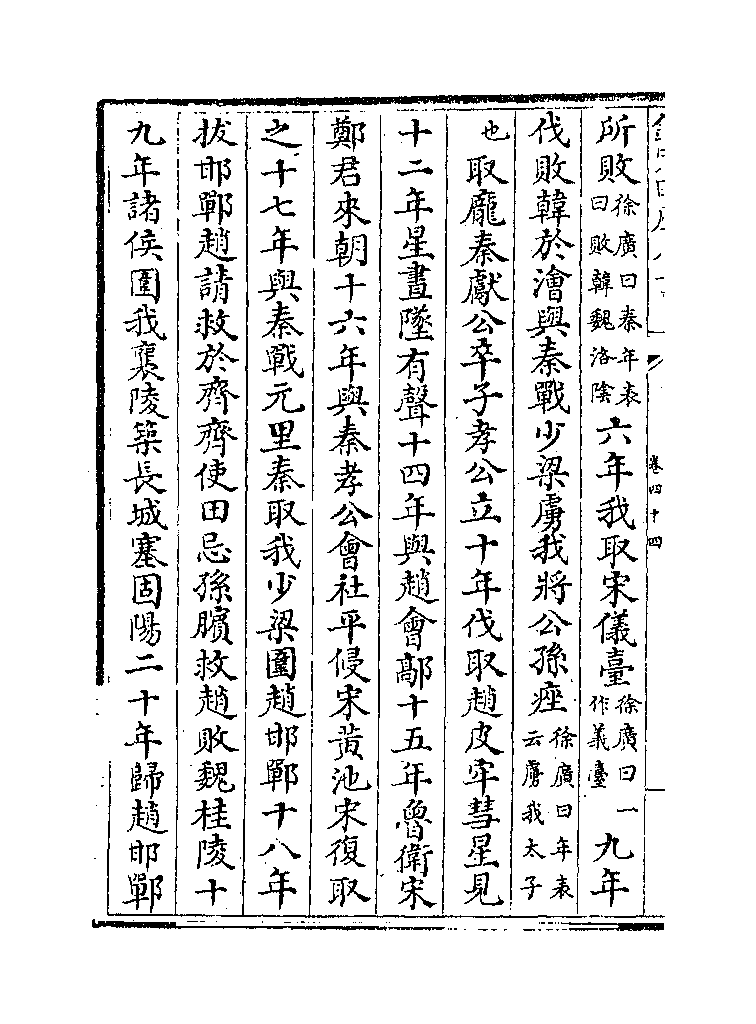 所敗徐廣曰秦年表曰敗韓魏洛隂六年我取宋儀臺徐廣曰一作義臺九年
伐敗韓於澮與秦戰少梁虜我將公孫痤徐廣曰年表云虜我太子
也取龐秦獻公卒子孝公立十年伐取趙皮牢彗星見
十二年星晝墜有聲十四年與趙會鄗十五年魯衛宋
鄭君來朝十六年與秦孝公會社平侵宋黄池宋復取
之十七年與秦戰元里秦取我少梁圍趙邯鄲十八年
拔邯鄲趙請救於齊齊使田忌孫臏救趙敗魏桂陵十
九年諸侯圍我襄陵築長城塞固陽二十年歸趙邯鄲
卷四十四